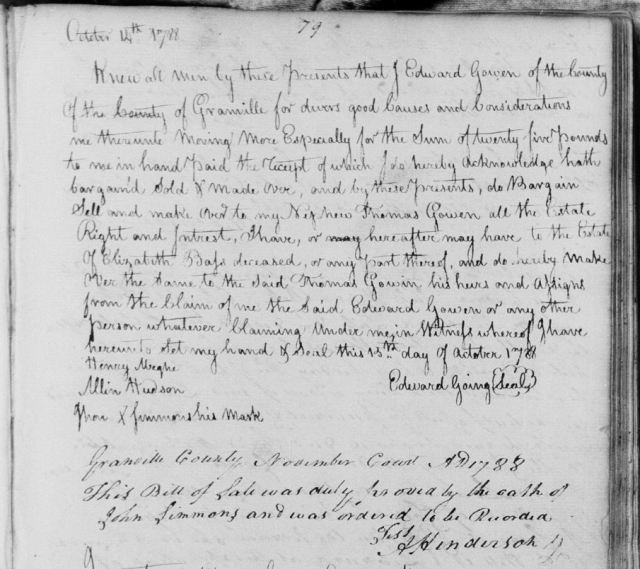 79
October 14th 1788
Know all men by these Presents that I Edward Gowen of the County
of the County of Granville for divers good Causes and Considerations
me thereunto Moving More Especially for the Sum of twenty five Pounds
to me in hand Paid the receipt of which I do hereby acknowledge hath
bargain'd Sold & Made Over, and by these Presents, do Bargain
Sell and make Over to my Nephew Thomas Gowen all the Estate
Right and Intrest, I have, or may hereafter may have to the Estate
Of Elizabeth Bass deceased, or any part thereof, and do hereby Make
Over the Same to the Said Thomas Gowin his heirs and Assigns
from the Claim of me the Said Edward Gowen or any other
person whatever Claiming Under me, in Witness whereof I have
hereunto Set my hand & Seal this 15th day of October 1788
Henry Meghe
Allin Hudson Edward Going (Seal)
Jhon X Simmons his Mark
Granville County November Court AD 1788
This Bill of Sale was duly proved by the oath of
John Simmons and was ordered to be Recorded
Test
A Henderson